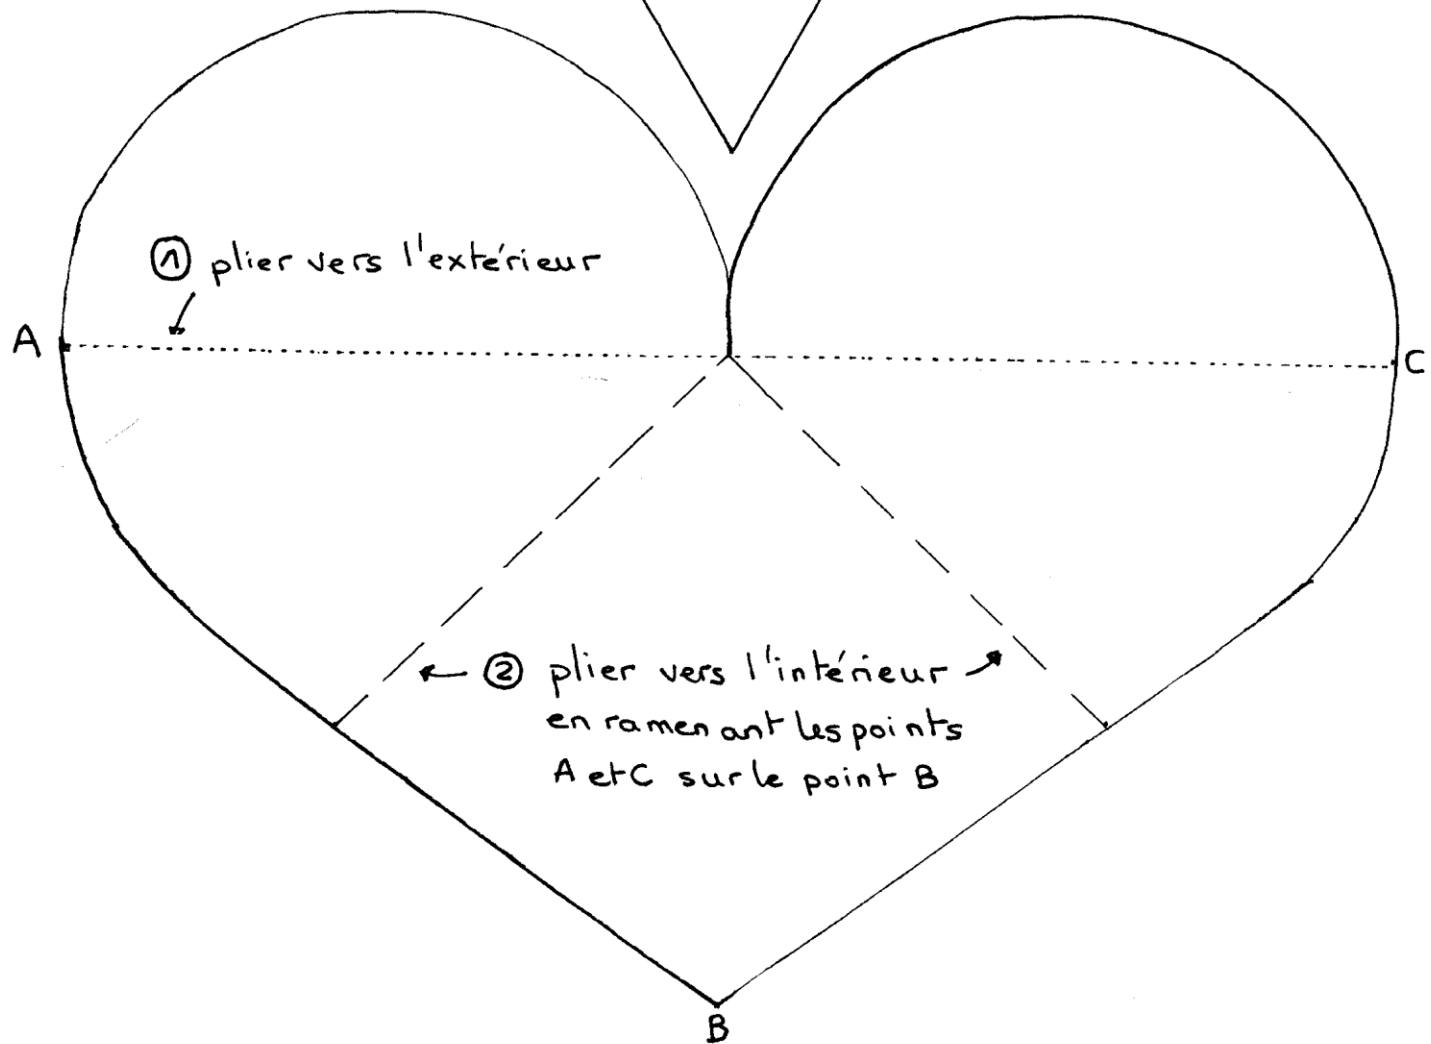 ① plier vers l'extérieur
A
C
② plier vers l'intérieur
en ramenant les points
A et C sur le point B
B